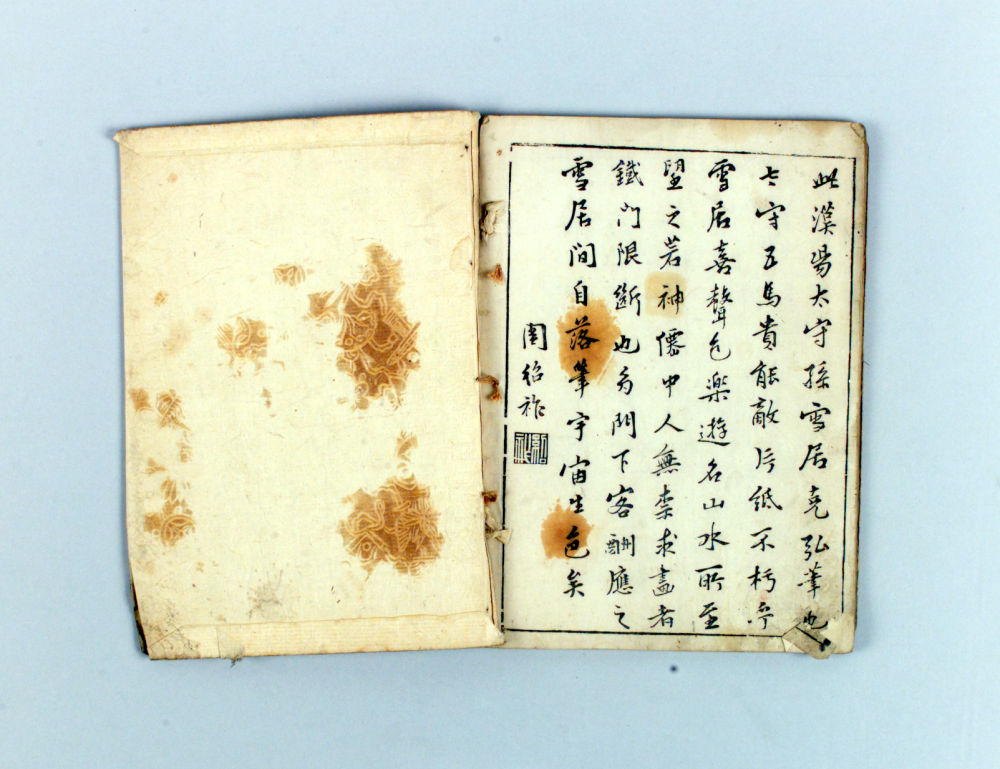 此漢陽太守孫雪居克弘筆也
守五馬貴能敵片紙不朽乎
雪居喜聲色樂遊名山水所至
望之若神僊中人無柰求畫者
鐵門限斷也多門下客酬應之
雪居間自落筆宇宙生色矣
周紹祚